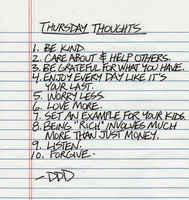 THURSDAY THOUGHTS
1. BE KIND
2. CARE ABOUT & HELP OTHERS.
3. BE GRATEFUL FOR WHAT YOU HAVE.
4. ENJOY EVERY DAY LIKE IT'S
YOUR LAST.
5. WORRY LESS.
6. LOVE MORE.
7. SET AN EXAMPLE FOR YOUR KIDS.
8. BEING "RICH" INVOLVES MUCH
MORE THAN JUST MONEY.
9. LISTEN.
10. FORGIVE.
- DDD